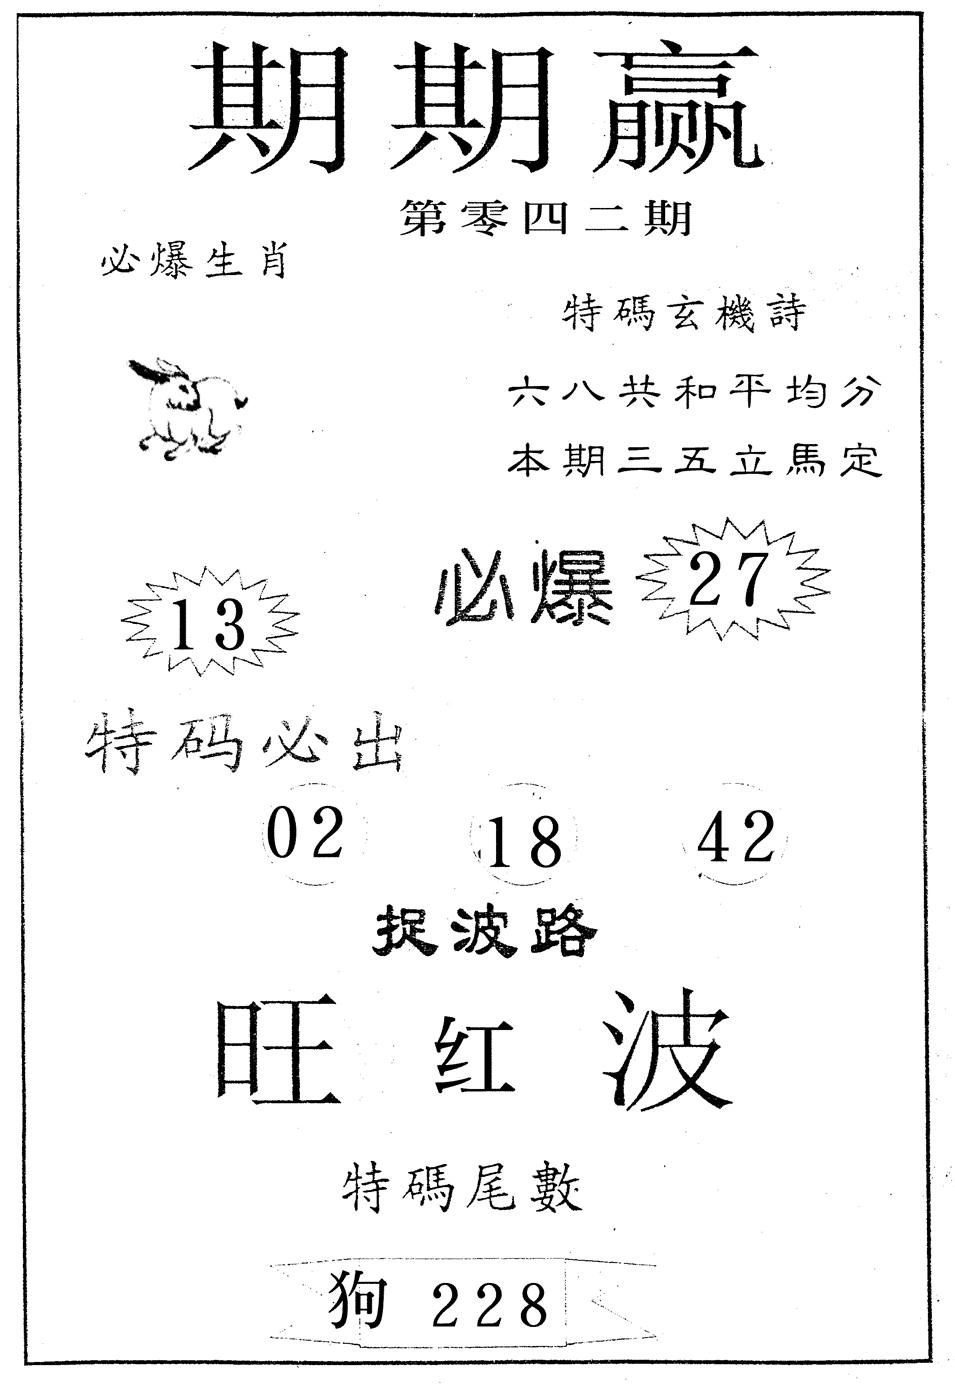 期期赢
第零四二期
必爆生肖
特碼玄機詩
六八共和平均分
本期三五立馬定
必爆 27
13
特码必出
02 18 42
捉波路
旺红波
特碼尾數
狗 228